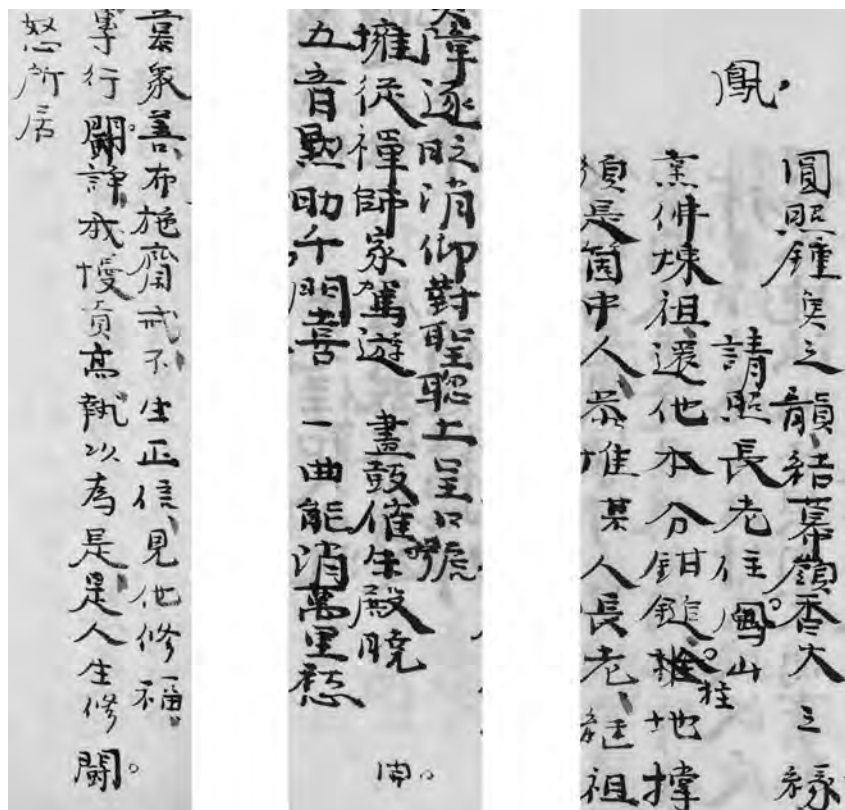 鳳
圓照鍾矣之韻結幕嶺香火之緣
請照長老住鳳山
烹佛煉祖還他本分鉗鎚地撐
拄
須是箇中人恭惟某人長老祖
障逐時消仰對聖聰上呈口號
擁從禪師家駕遊 畫鼓催生殿曉
五音助千門喜 一曲能消萬里愁
衆善布施齋戒不生正信見他修福
專行鬪諍我慢貢高執以為是是人生修
鬪
怒所居